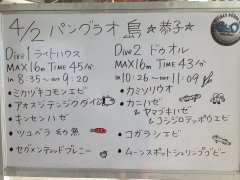 4/2 パングラオ島 ☆恭子☆
Dive1 ライトハウス
MAX16m TIME45分
in 8:35〜out 9:20
• ミカヅキコモンエビ
• アオスジテンジクダイ
• キンセンハゼ
• ツユベラ
• セグメンティッドブレニー
Dive2 ドゥオル
MAX16m TIME43分
in 10:26〜out 11:09
• カミソリウオ
• カニハゼ
& ヤマブキハゼ
& コシジロテッポウエビ
• コガラシエビ
• ムーンスポットシュリンプゴビー